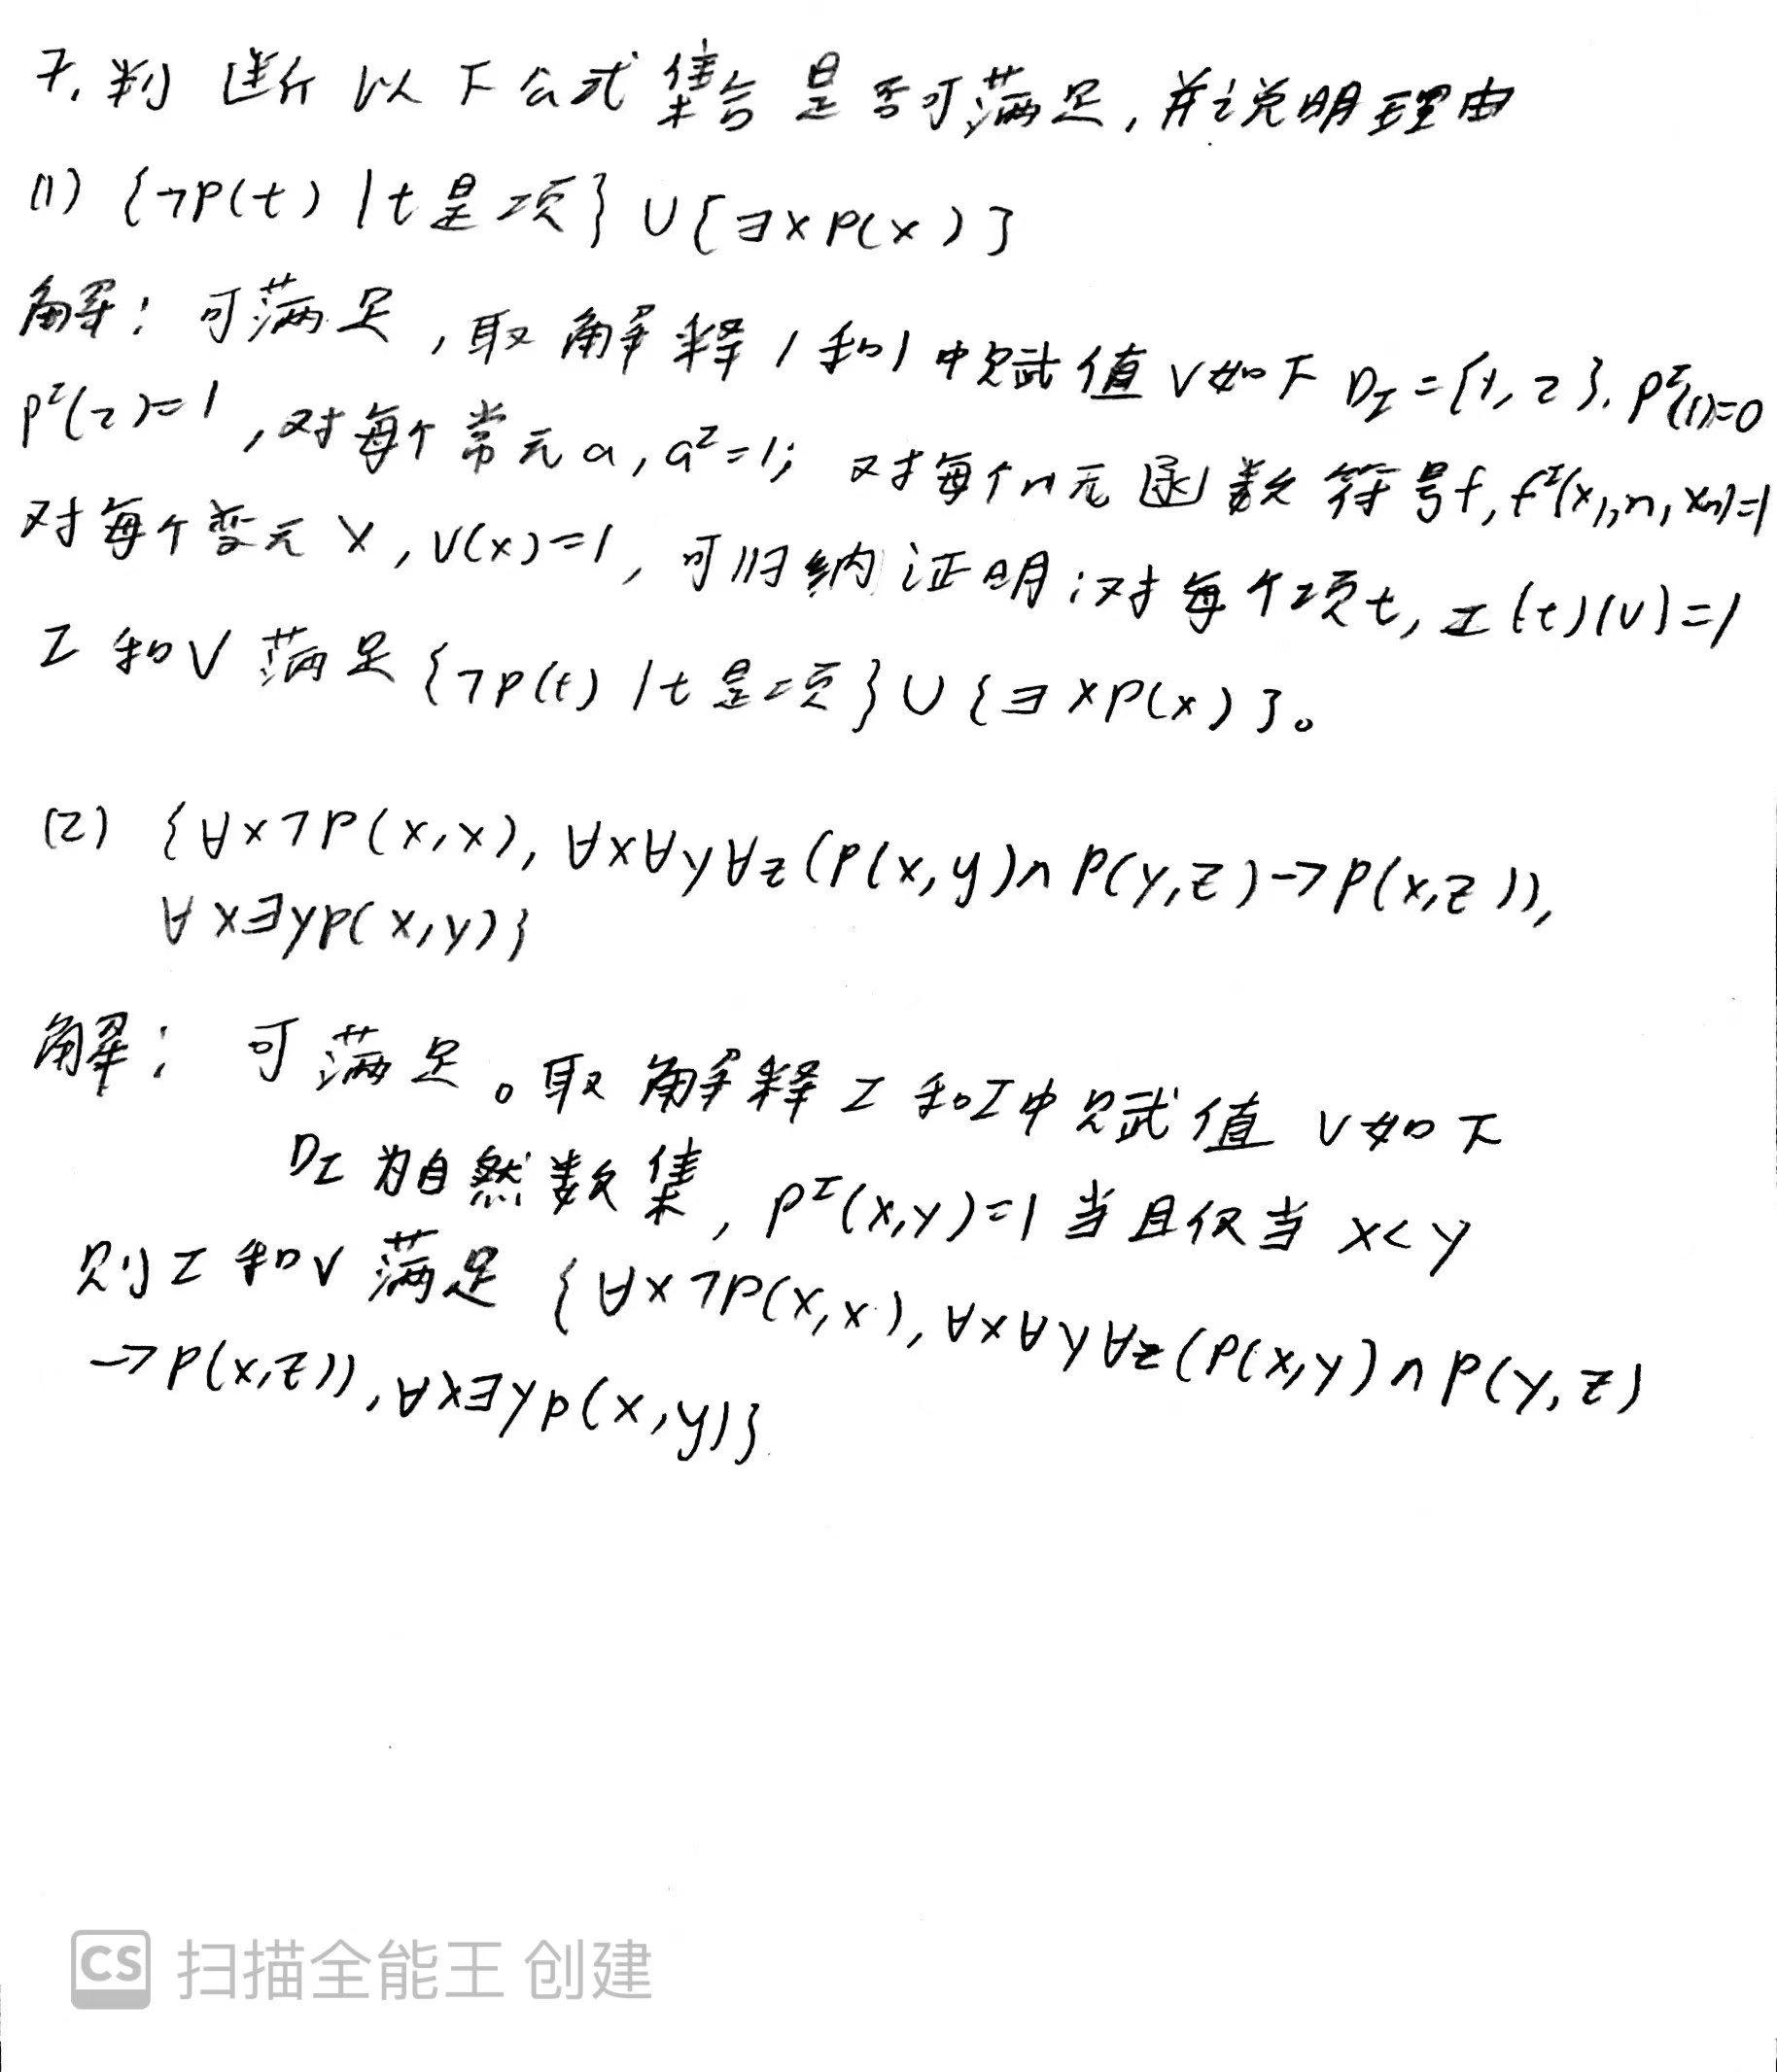 7. 判断以下公式集合是否可满足,并说明理由
(1) {¬P(t) | t是项} ∪ {∃xP(x)}
解: 可满足,取解释I和I中赋值V如下 D_I = {1, 2}. P^I(1)=0
P^I(2)=1,对每个常元a, a^I=1; 对每个n元函数符号f, f^I(x₁,n,xn)=1
对每个变元x, V(x)=1, 可归纳证明:对每个项t, I(t)(V)=1
I和V满足{¬P(t) | t是项} ∪ {∃xP(x)}。
(2) {∀x¬P(x,x), ∀x∀y∀z(P(x,y)∧P(y,z)→P(x,z)),
∀x∃yP(x,y)}
解: 可满足。取解释I和I中赋值V如下
D_I为自然数集, P^I(x,y)=1当且仅当 x<y
则I和V满足 {∀x¬P(x,x), ∀x∀y∀z(P(x,y)∧P(y,z)
→P(x,z)), ∀x∃yP(x,y)}
CS 扫描全能王 创建